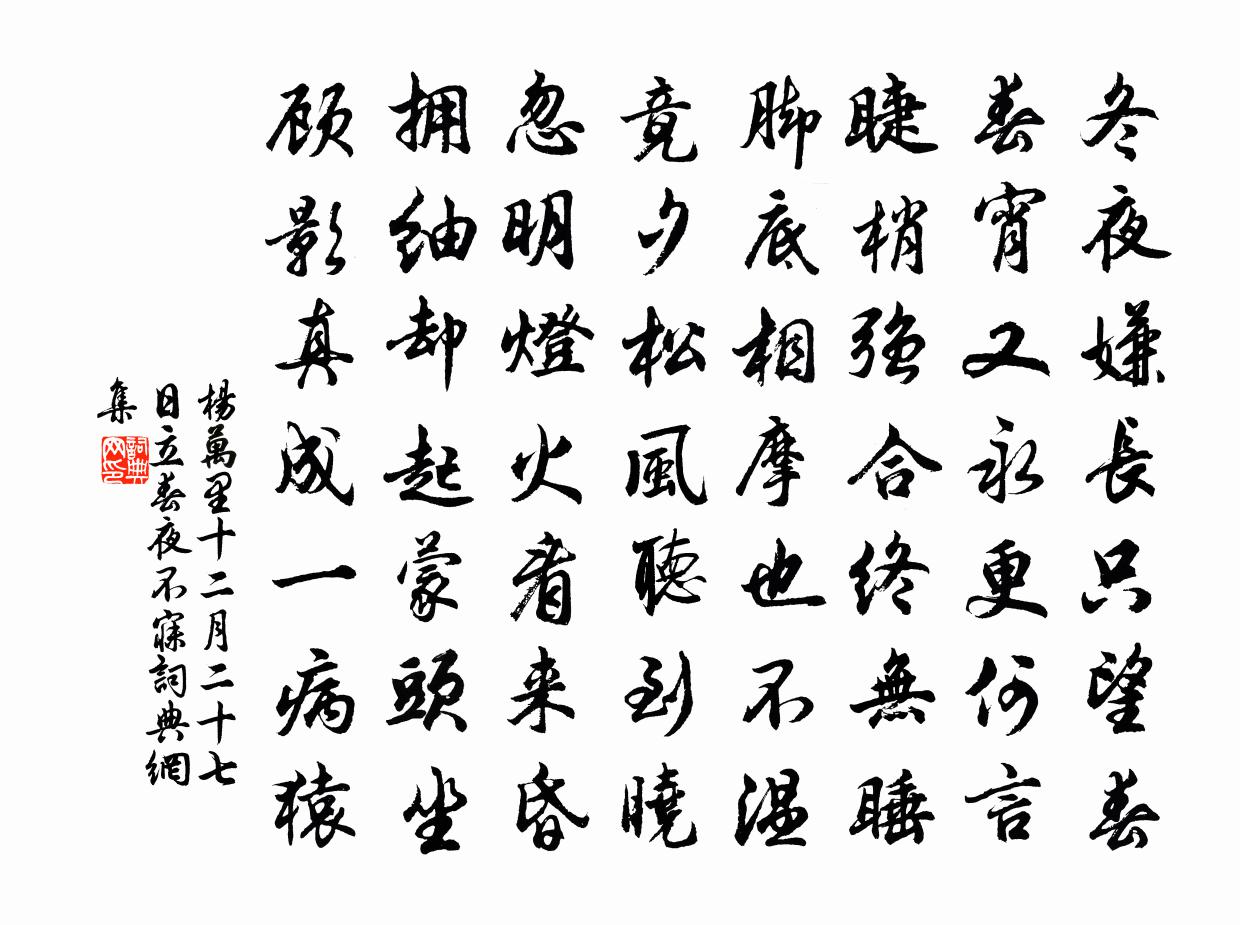 冬夜嫌長只望春
春宵又永更何言
睫梢強合終無睡
脚底相摩也不温
竟夕松風聽到曉
忽明燈火看来昏
拥紬却起蒙頭坐
顾影真成一病猿
楊萬里十二月二十七
日立春夜不寐詞典網
集
詞典網印